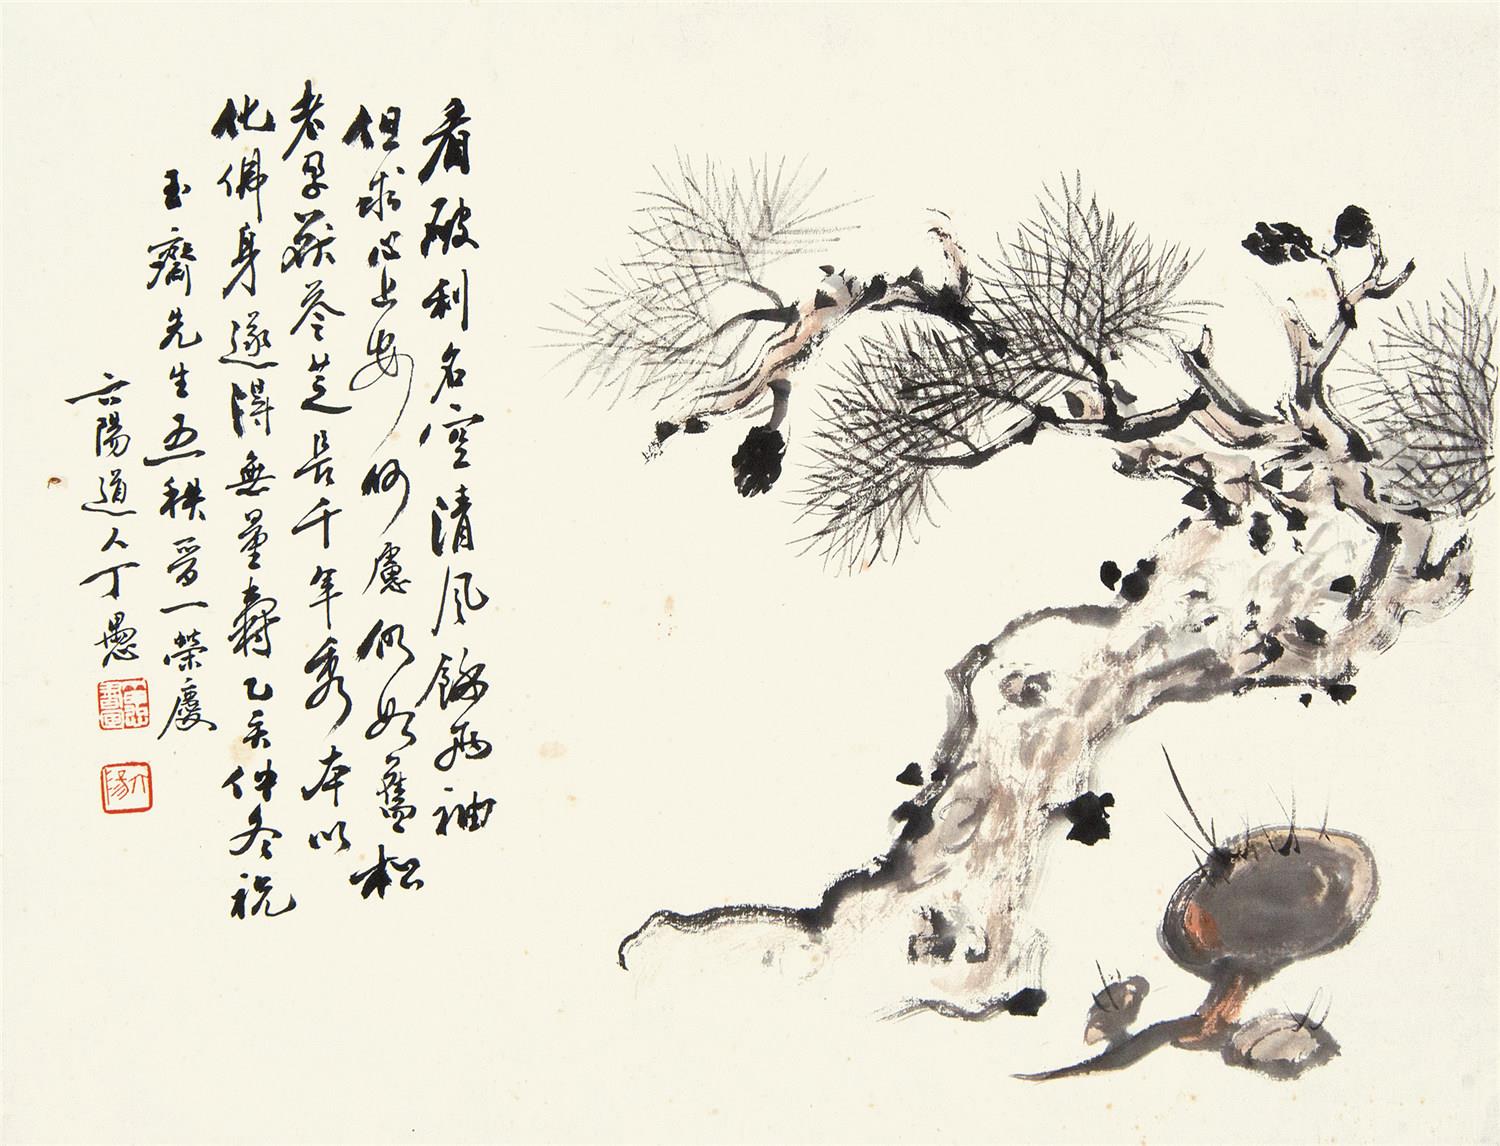 看破利名空清風餘兩袖
但求心上安何慮仍如舊松
老孕茯苓芝長千年秀本以
化佛身遂得無量壽乙亥仲冬祝
玉齋先生五秩晉一榮慶
六陽道人丁愚
六陽